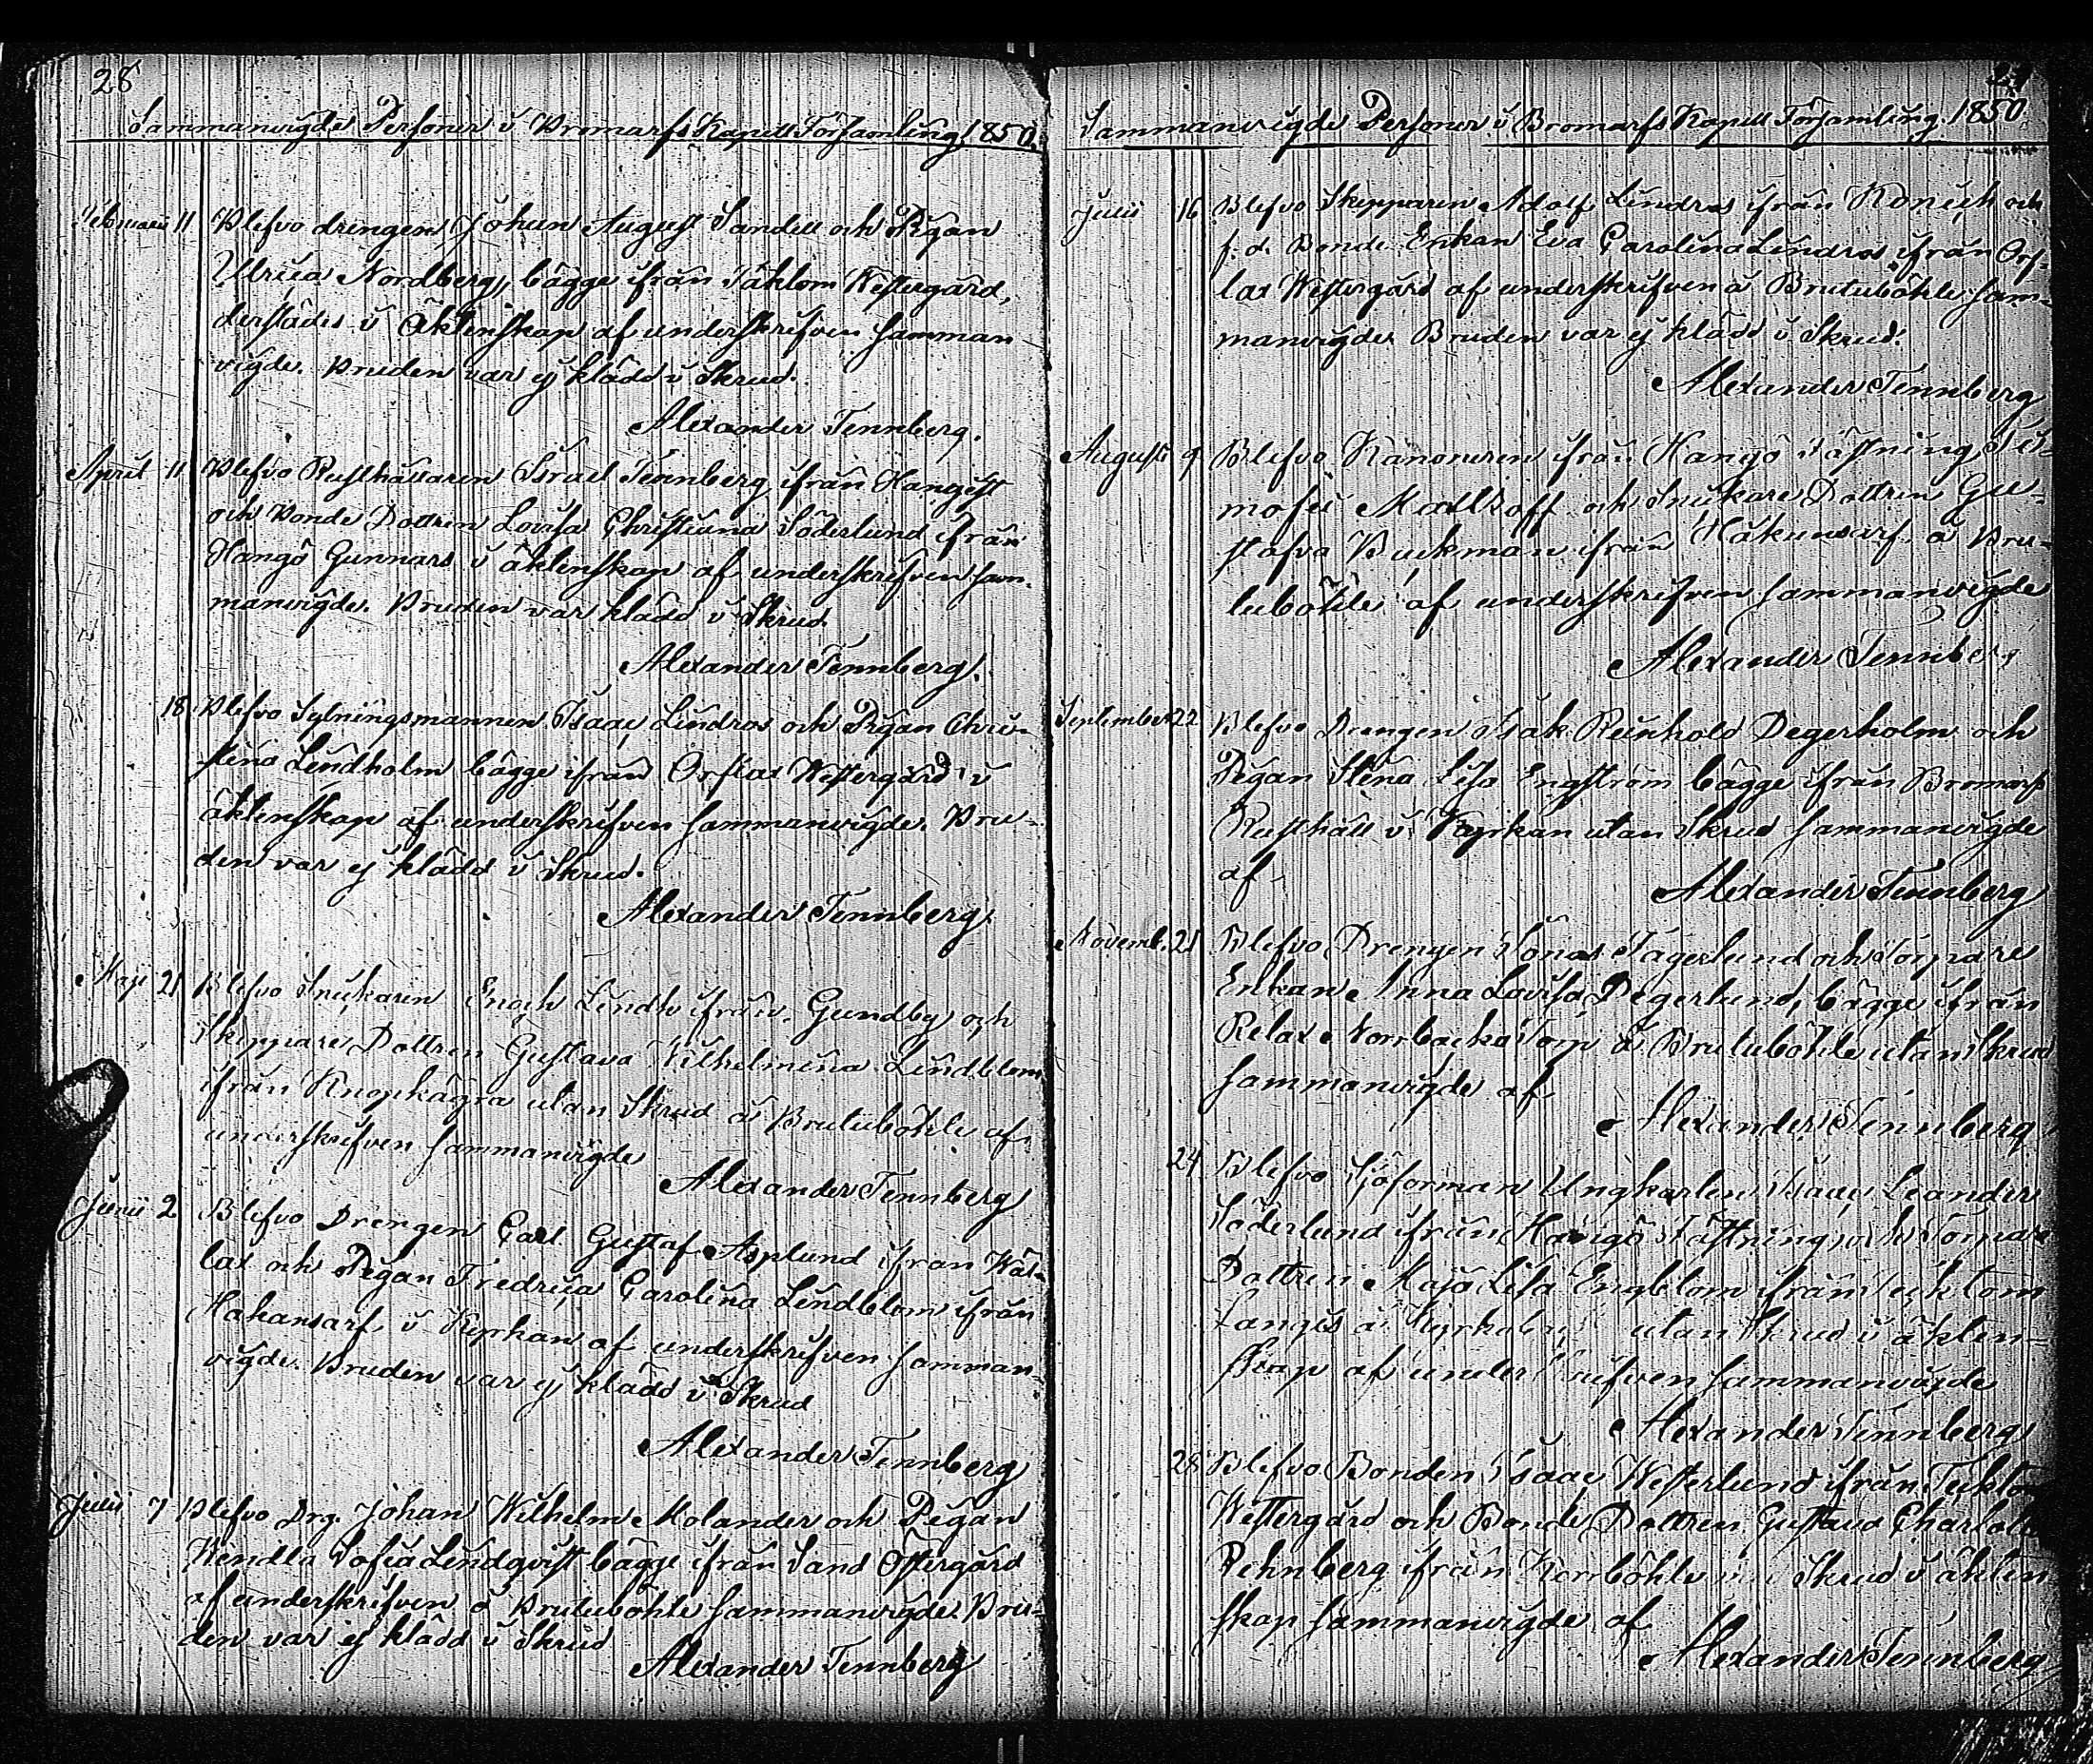 28
Sammanvigde Personer i Bromarfs Kapell Församling 1850.
Februarii 11 Blefvo drengen Johan August Sandell och Pigan
Ulrica Nordberg, bägge ifrån Täktom Westergård,
derstädes i Äktenskap af underskrifven samman
vigde. Bruden var ej klädd i Skrud.
Alexander Tennberg.
April 11 Blefvo Rusthållaren Israel Tennberg ifrån Hangist
och Bonde Dottren Lovisa Christina Söderlund ifrån
Hangö Gunnars i äktenskap af underskrifven sam-
manvigde. Bruden var klädd i Skrud.
Alexander Tennberg.
18 Blefvo Sytningsmannen Isaac Lindros och Pigan Chri-
stina Lindholm bägge ifrån Orslax Westergård i
äktenskap af underskrifven sammanvigde. Bru-
den var ej klädd i Skrud.
Alexander Tennberg.
Maji 21 Blefvo Snickaren Enoch Lindh ifrån Gundby och
Skeppare Dottren Gustava Wilhelmina Lindblom
ifrån Knopkägra utan Skrud å Brutuböhle af
underskrifven sammanvigde
Alexander Tennberg
Junii 2 Blefvo Drengen Carl Gustaf Asplund ifrån Wät-
lax och Pigan Fredrica Carolina Lindblom ifrån
Håkansarf i Kyrkan af underskrifven samman-
vigde. Bruden var ej klädd i Skrud
Alexander Tennberg
Julii 7 Blefvo Drg. Johan Wilhelm Molander och Pigan
Wendla Sofia Lindqvist bägge ifrån Sand Östergård
af underskrifven å Brutuböhle sammanvigde. Bru-
den var ej klädd i Skrud
Alexander Tennberg
Sammanvigde Personer i Bromarfs Kapell Församling 1850
Julii 16 Blefvo Skepparen Adolf Lindros ifrån och
f. d. Bonde Enkan Eva Carolina Lindros ifrån Ors-
lax Westergård af underskrifven å Brutuböhle sam-
manvigde. Bruden var ej klädd i Skrud.
Alexander Tennberg
Augusti 9 Blefvo Kanoneren ifrån Hangö Fästning Ti-
mofei och Snickare Dottren Gu-
stafva Bäckman ifrån Håkansarf å Bru-
tuböhle af underskrifven sammanvigde
Alexander Tennberg
September 22 Blefvo Drengen Isak Reinhold Degerholm och
Pigan Stina Lisa Engström bägge ifrån Bromarfs
Rusthåll i Kyrkan utan Skrud sammanvigde
af
Alexander Tennberg
Novemb. 21 Blefvo Drengen Jonas Fagerlund och Torpare
Enkan Anna Lovisa Degerlund, bägge ifrån
Relax Norrbacka Torp å Brutuböhle utan Skrud
sammanvigde af
Alexander Tennberg
24 Blefvo Sjöforman Ungkarlen Isaac Leander
Söderlund ifrån Hangö Fästning och Torpare
Dottren Maja Lisa Engblom ifrån Täcktom
Langis å Kyrkoby utan Skrud i äkten-
skap af underskrifven sammanvigde
Alexander Tennberg
28 Blefvo Bonden Isaac Westerlund ifrån Täktom
Westergård och Bonde Dottren Gustava Charlotta
Rehnberg ifrån Norrböhle i Skrud i äkten
skap sammanvigde af
Alexander Tennberg